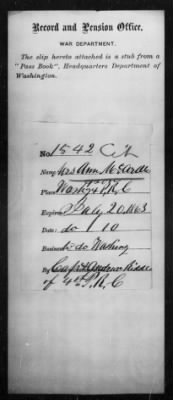 Record and Pension Office,
WAR DEPARTMENT.
The slip hereto attached is a stub from a
"Pass Book", Headquarters Department of
Washington.
No. 1542
Name, Mrs Ann McArdle
Place,
Expires, July 20 1863
Date, do 10
Business, to do Washing
By Capt Andrew
of 4th P. R. C